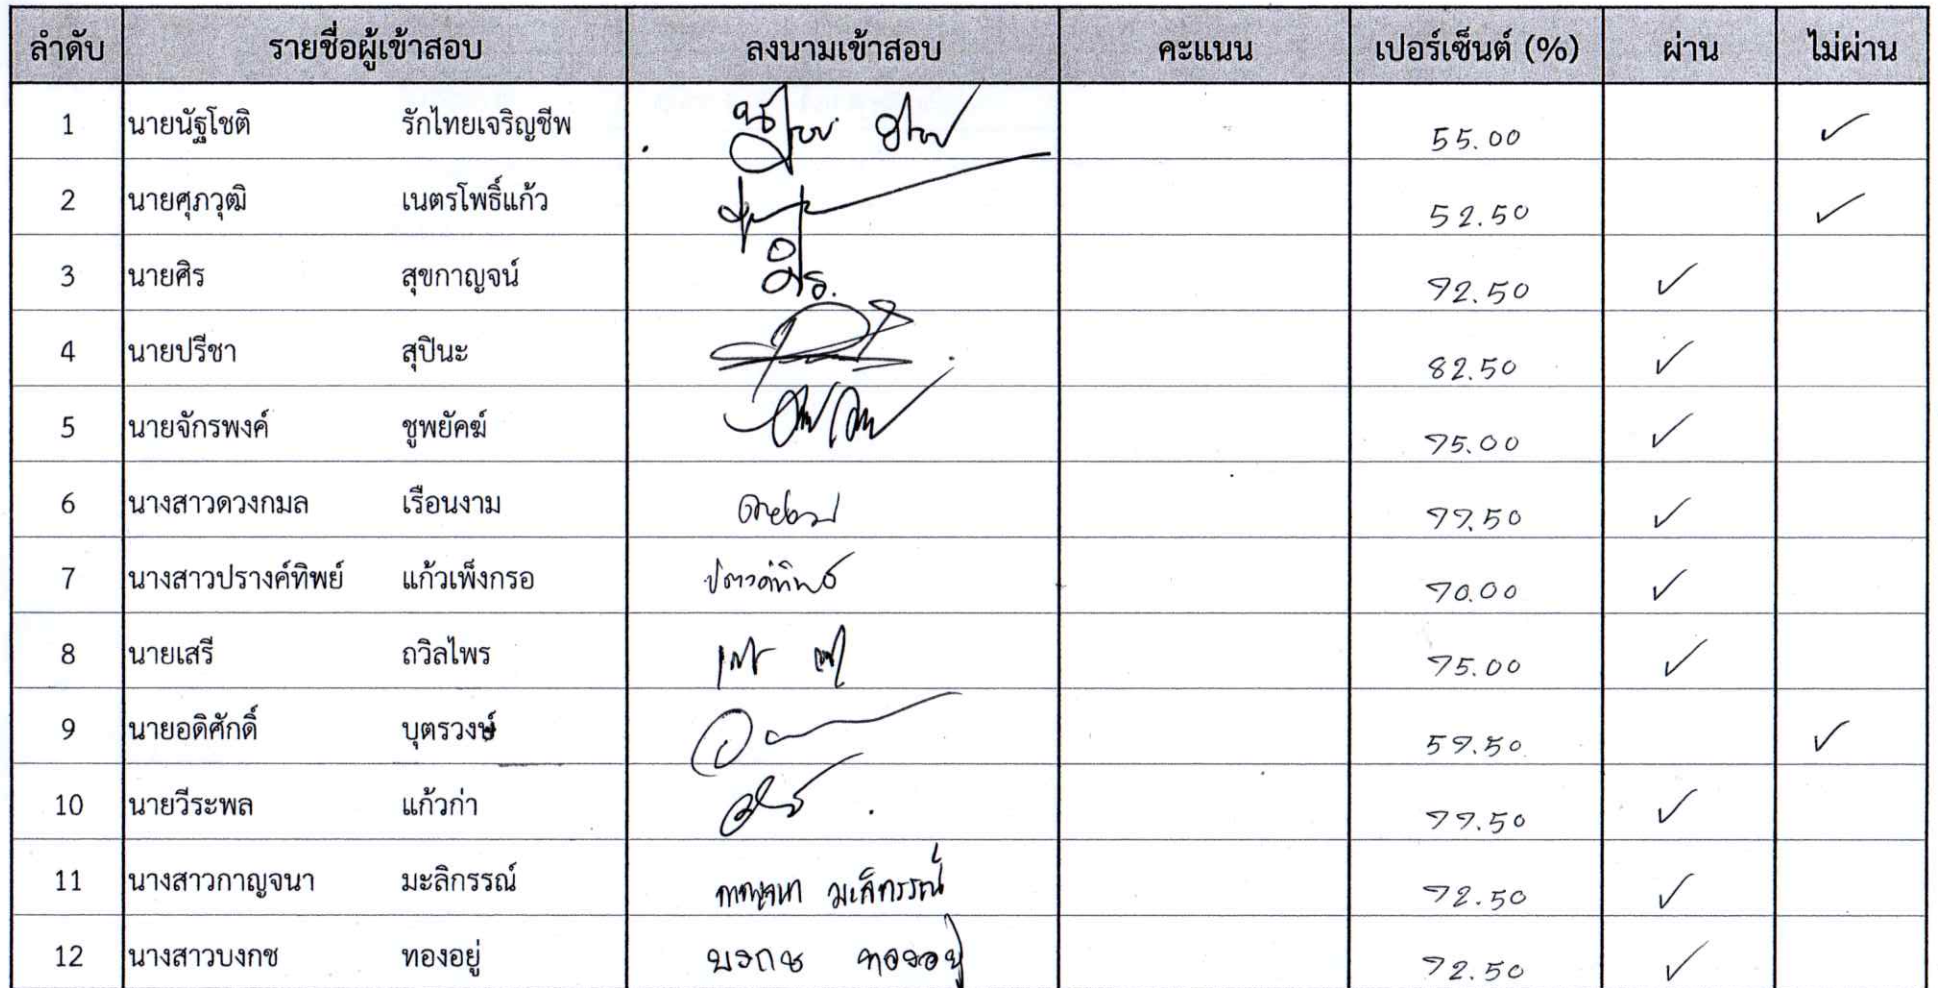 ลำดับ รายชื่อผู้เข้าสอบ ลงนามเข้าสอบ คะแนน เปอร์เซ็นต์ (%) ผ่าน ไม่ผ่าน
1 นายนัฐโชติ รักไทยเจริญชีพ 55.00 ✓
2 นายศุภวุฒิ เนตรโพธิ์แก้ว 52.50 ✓
3 นายศิร สุขกาญจน์ ศิร. 72.50 ✓
4 นายปรีชา สุปินะ 82.50 ✓
5 นายจักรพงค์ ชูพยัคฆ์ 75.00 ✓
6 นางสาวดวงกมล เรือนงาม 77.50 ✓
7 นางสาวปรางค์ทิพย์ แก้วเพ็งกรอ ปรางค์ทิพย์ 70.00 ✓
8 นายเสรี ถวิลไพร 75.00 ✓
9 นายอดิศักดิ์ บุตรวงษ์ 57.50 ✓
10 นายวีระพล แก้วก่า 77.50 ✓
11 นางสาวกาญจนา มะลิกรรณ์ กาญจนา มะลิกรรณ์ 72.50 ✓
12 นางสาวบงกช ทองอยู่ บงกช ทองอยู่ 72.50 ✓